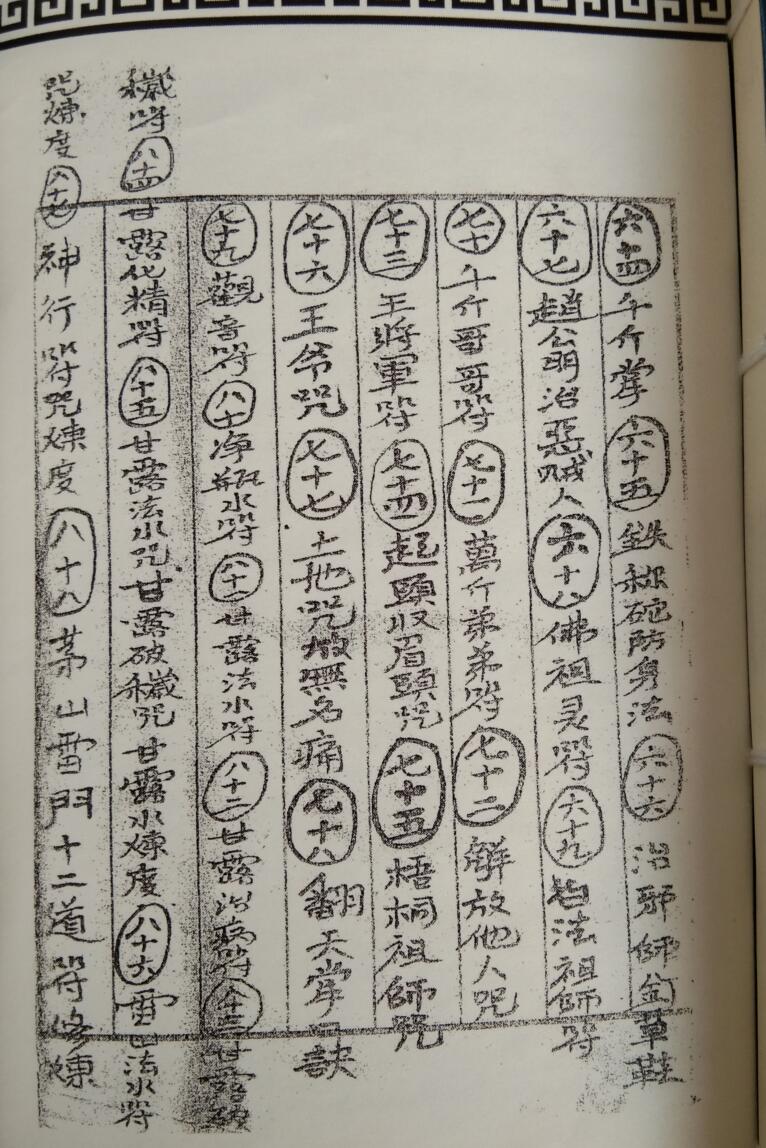 六十四千斤掌六十五鉄袍防身法六十六治邪師金草鞋
六十七趙公明治惡賊人六十八佛祖灵符六十九法祖師符
七十千斤哥哥符七十一萬斤弟弟符七十二解放他人咒
七十三王將軍符七十四起頭收眉頭咒七十五梧桐祖師咒
七十六王爷咒七十七土地咒放無名痛七十八翻天掌口訣
七十九觀音符八十净瓶水符八十一甘露法水符八十二甘露治病符八十三甘露破
穢符八十四甘露化精符八十五甘露法水咒甘露破穢咒甘露水煉度八十六雷法水符
咒煉度八十七神行符咒煉度八十八茅山雷門十二道符修煉